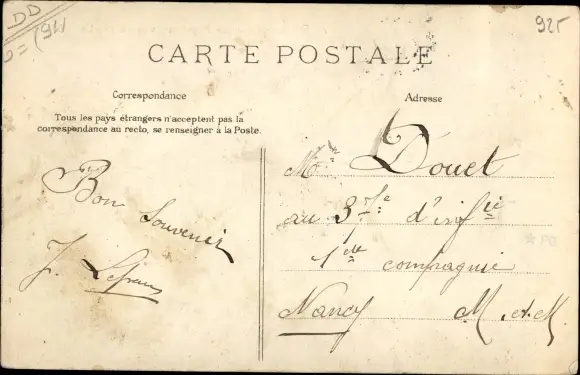 DD
925
CARTE POSTALE
Correspondance
Adresse
Tous les pays étrangers n'acceptent pas la
correspondance au recto, se renseigner à la Poste.
Bon Souvenir
J.
Mr Douet
au 37e d'infie
1ère compagnie
Nancy M. et. M.